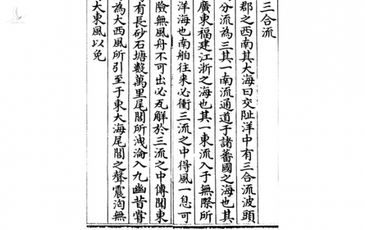 三合流
郡之西南其大海曰交阯洋中有三合流波頭
分流為三其一南流通道于諸蕃國之海也其
廣東福建江浙之海也其一東流入于無際所
洋海也南舶往來必衝三流之中得風一息可
險無風舟不可出必瓦解於三流之中傳聞東
有長砂石塘數萬里尾閭所洩淪入九幽昔嘗
為大西風所引至于東大海尾閭之聲震洶無
大東風以免